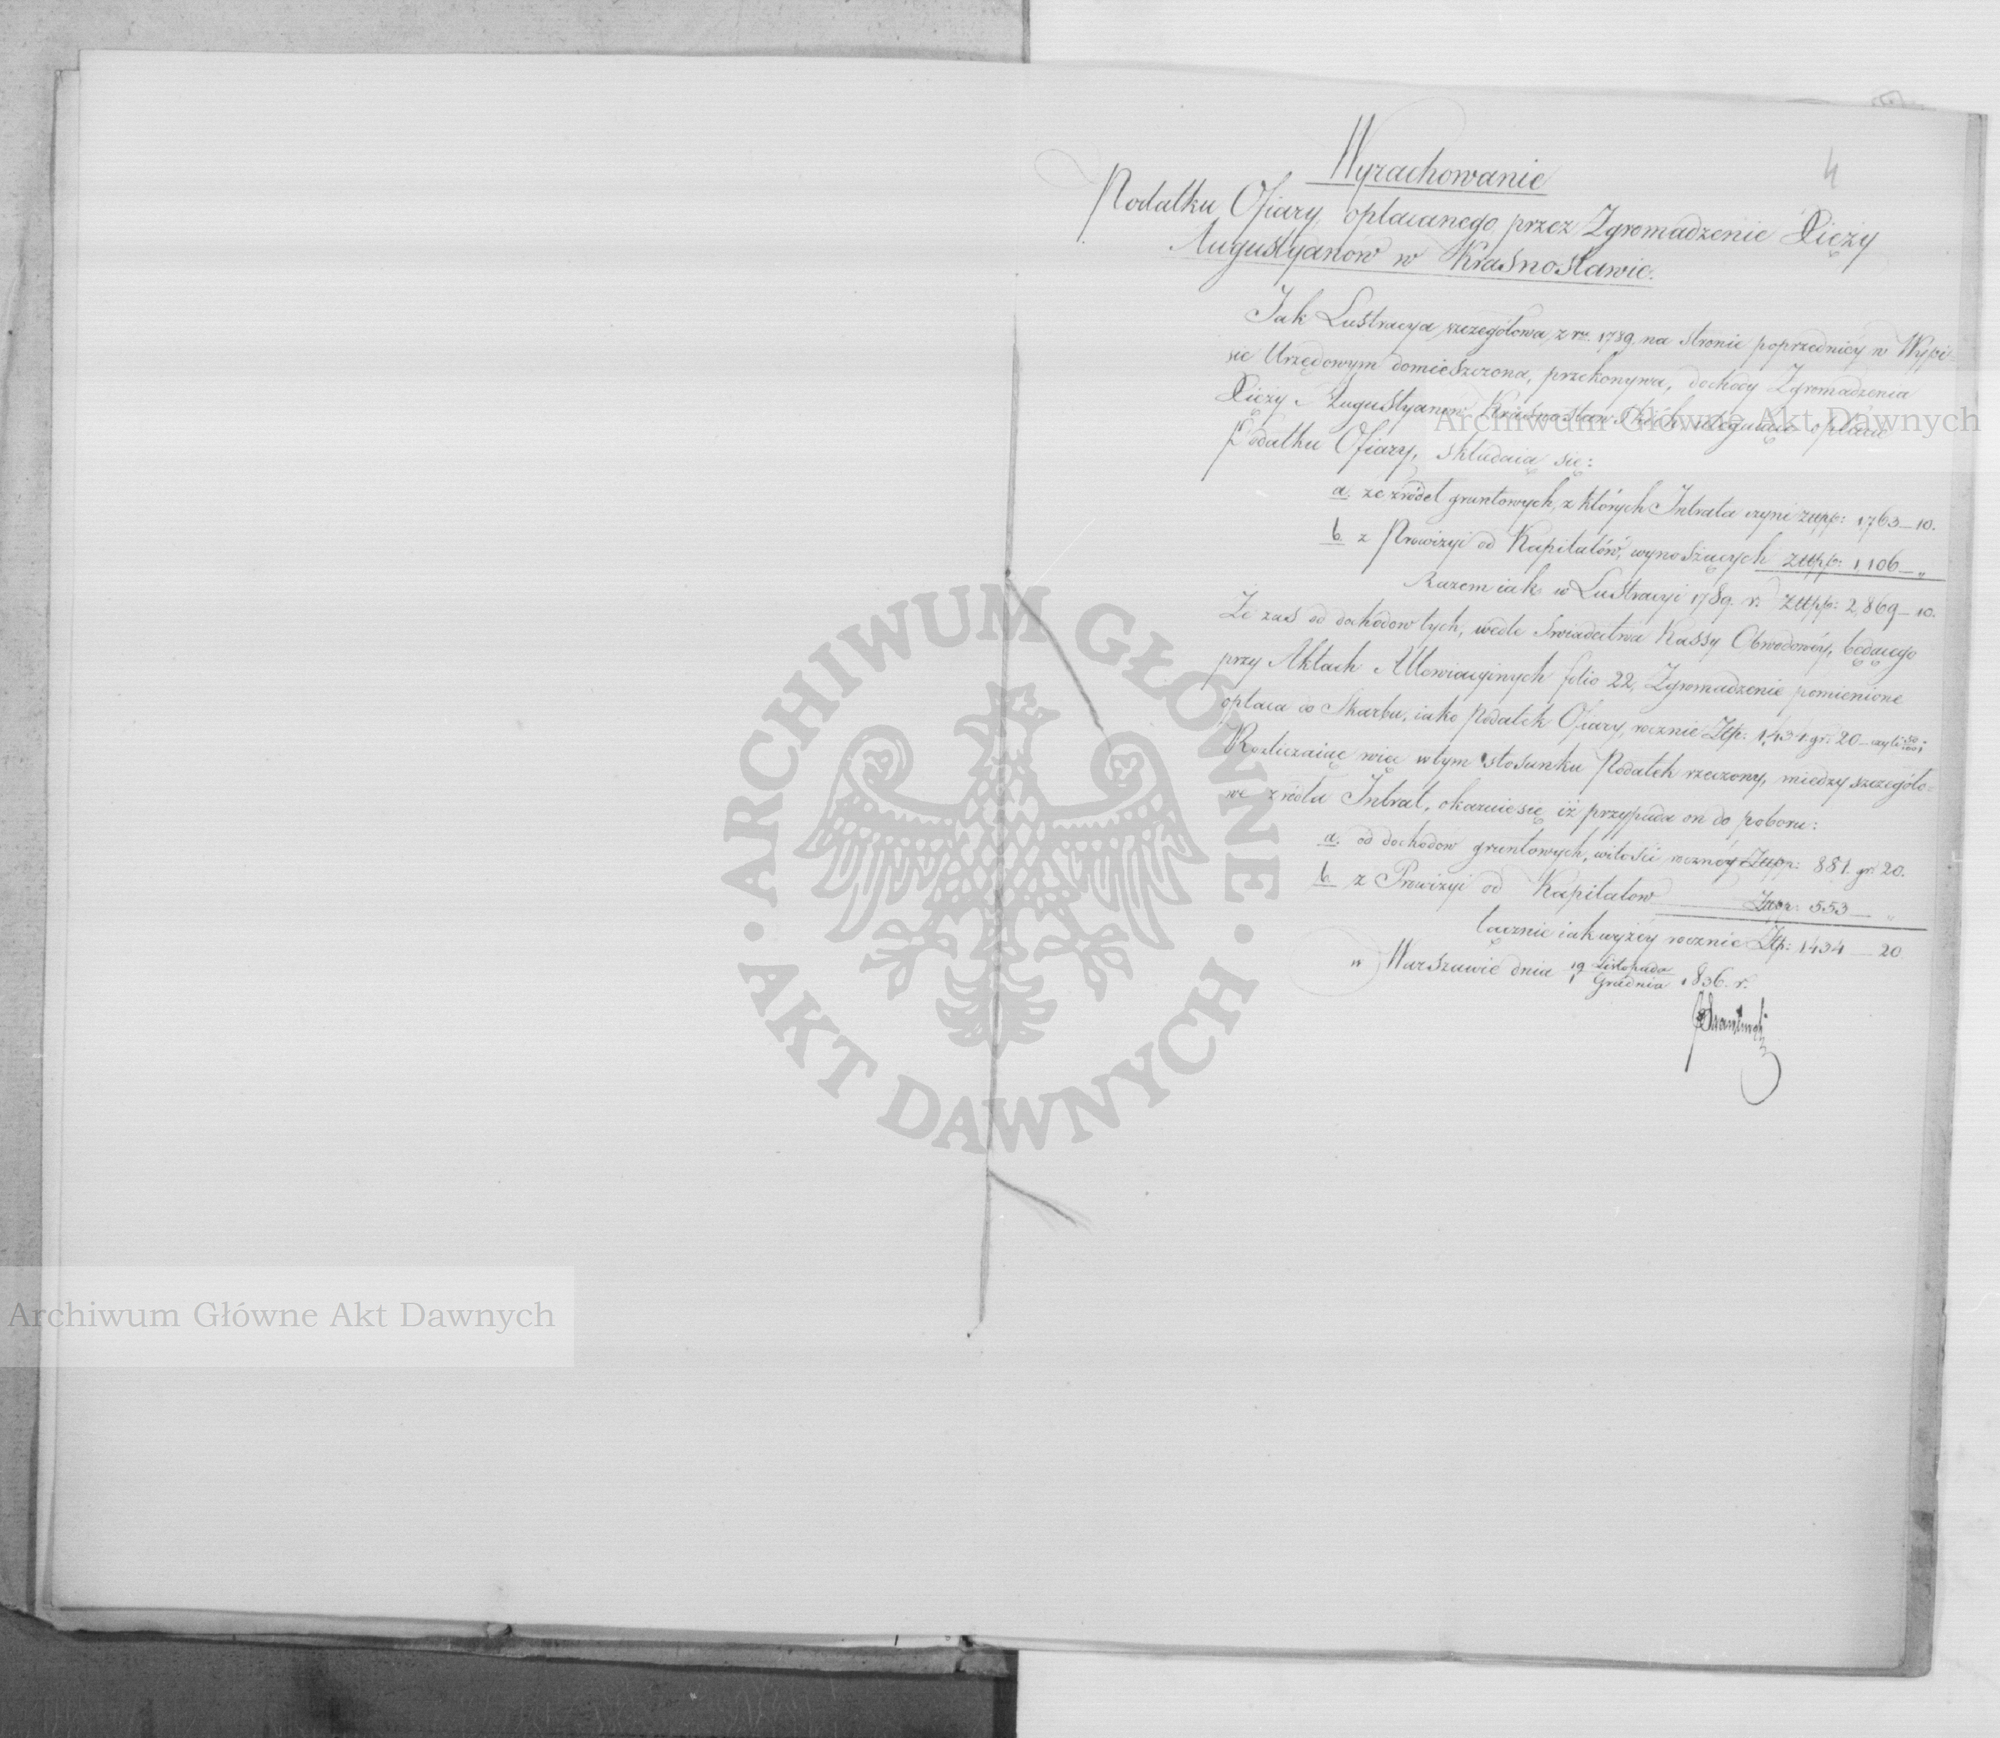 4
Wyrachowanie
Podatku Ofiary opłacanego przez Zgromadzenie Xięży
Augustyanow w Krasnostawie.
Jak Lustracya szczegółowa z r. 1789 na stronie poprzedniéy w Wypi-
sie Urzędowym domieszczona, przekonywa, dochody Zgromadzenia
Xięży Augustyanow Krasnostawskich ulegaiące opłacie
Podatku Ofiary, składaią się:
a. ze źródeł gruntowych, z których Intrata czyni złłpp: 1,763 — 10.
b. z Prowizyi od Kapitałów, wynoszących złłpp: 1,106 — „
Razem iak w Lustracyi 1789. r. złłpp: 2,869 — 10.
Że zaś od dochodow tych, wedle świadectwa Kassy Obwodowéy, będącego
przy Aktach folio 22, Zgromadzenie pomienione
opłaca do Skarbu, iako Podatek Ofiary, rocznie Złp: 1,434 gr: 20 — czyli 50/100;
Rozliczaiąc więc w tym stosunku Podatek rzeczony, między szczegóło-
we źródła Intrat, okazuie się iż przypada on do poboru:
a. od dochodow gruntowych, w ilości rocznéy Złpp: 881. gr: 20.
b. z Prowizyi od Kapitałow Złpp: 553 — „
łącznie iak wyżéy rocznie Złp: 1434 — 20
w Warszawie dnia 19 Listopada / 1 Grudnia 1836. r.
ARCHIWUM GŁÓWNE • AKT DAWNYCH •
Archiwum Główne Akt Dawnych
Archiwum Główne Akt Dawnych